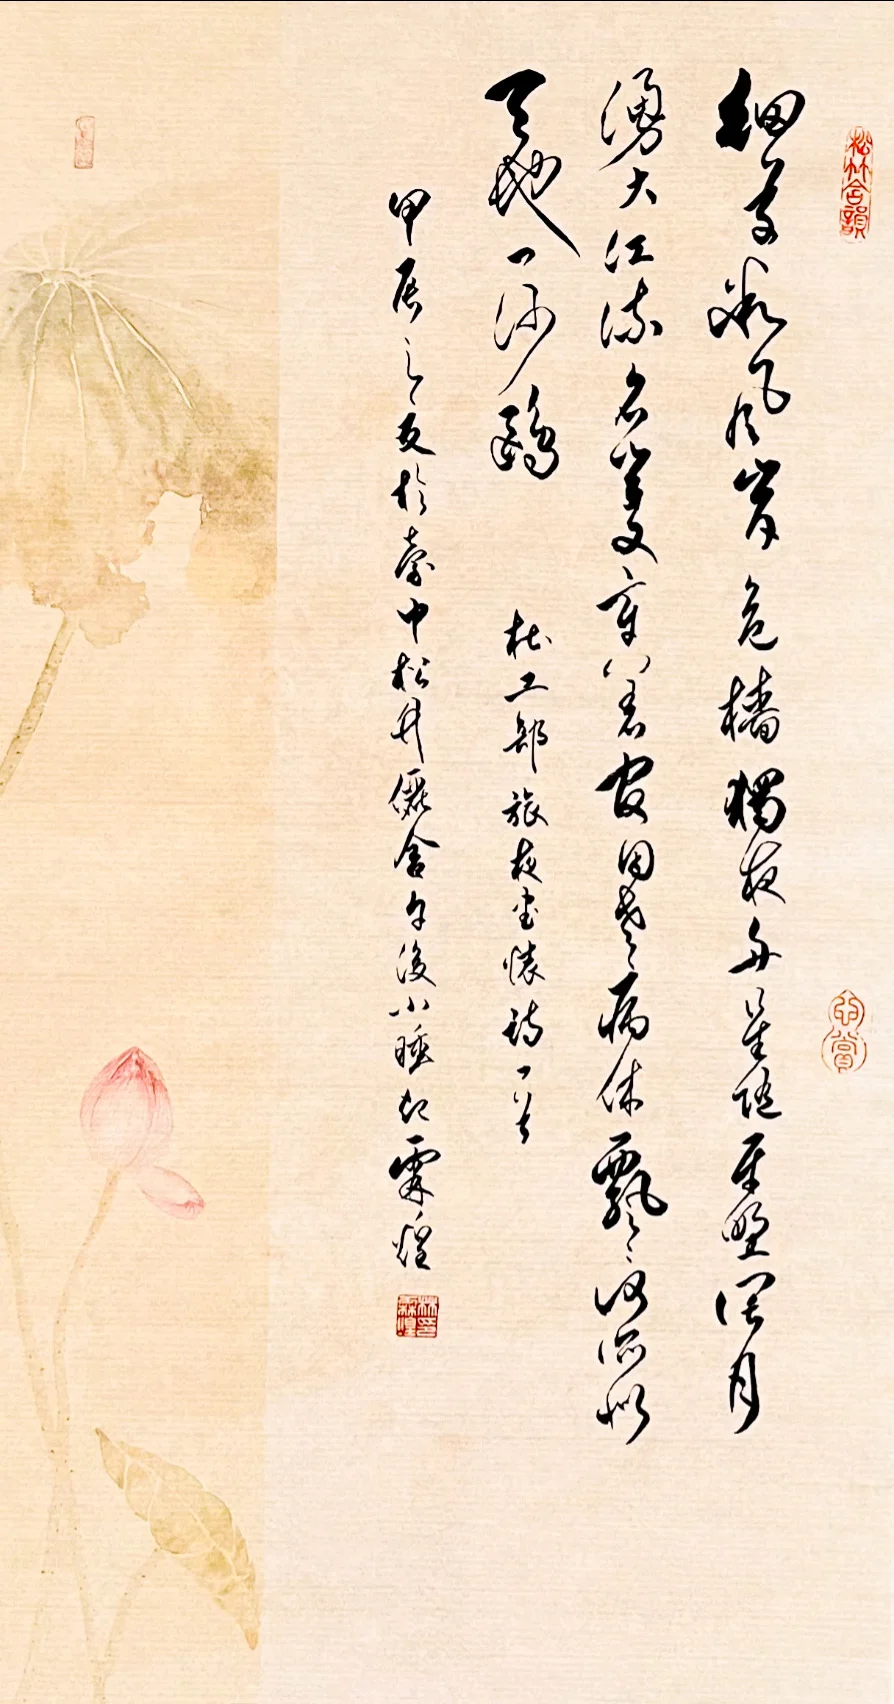 松竹含韻
心賞
細草微風岸危檣獨夜舟星隨平野闊月
湧大江流名豈文章著官因老病休飄飄何所似
天地一沙鷗
杜工部旅夜書懷詩一首
甲辰之夏於臺中松竹儷舍午後小睡起霖煌
林印霖煌